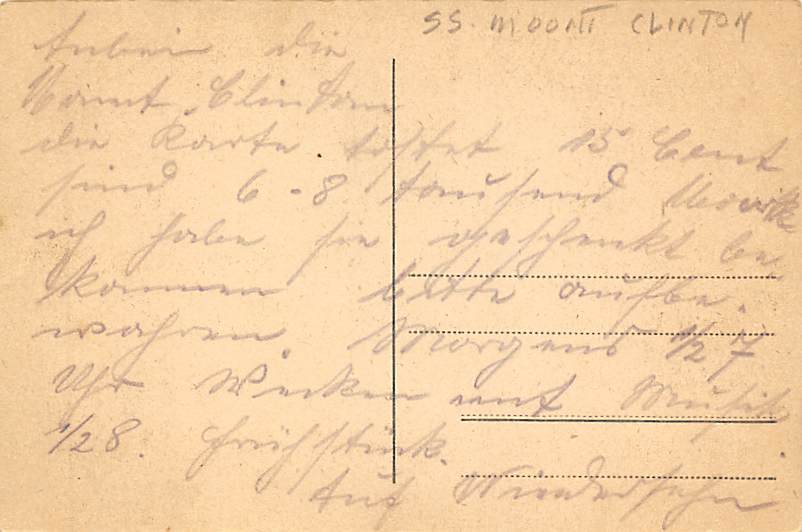 SS. MOUNT CLINTON
Anbei die
Mount Clinton
die Karte kostet 15 Cent
sind 6-8 tausend Mark
ich habe sie geschenkt be-
kommen bitte aufbe-
wahren. Morgens 1/2 7
Uhr Wecken mit Musik
1/2 8. Frühstück.
Auf Wiedersehn